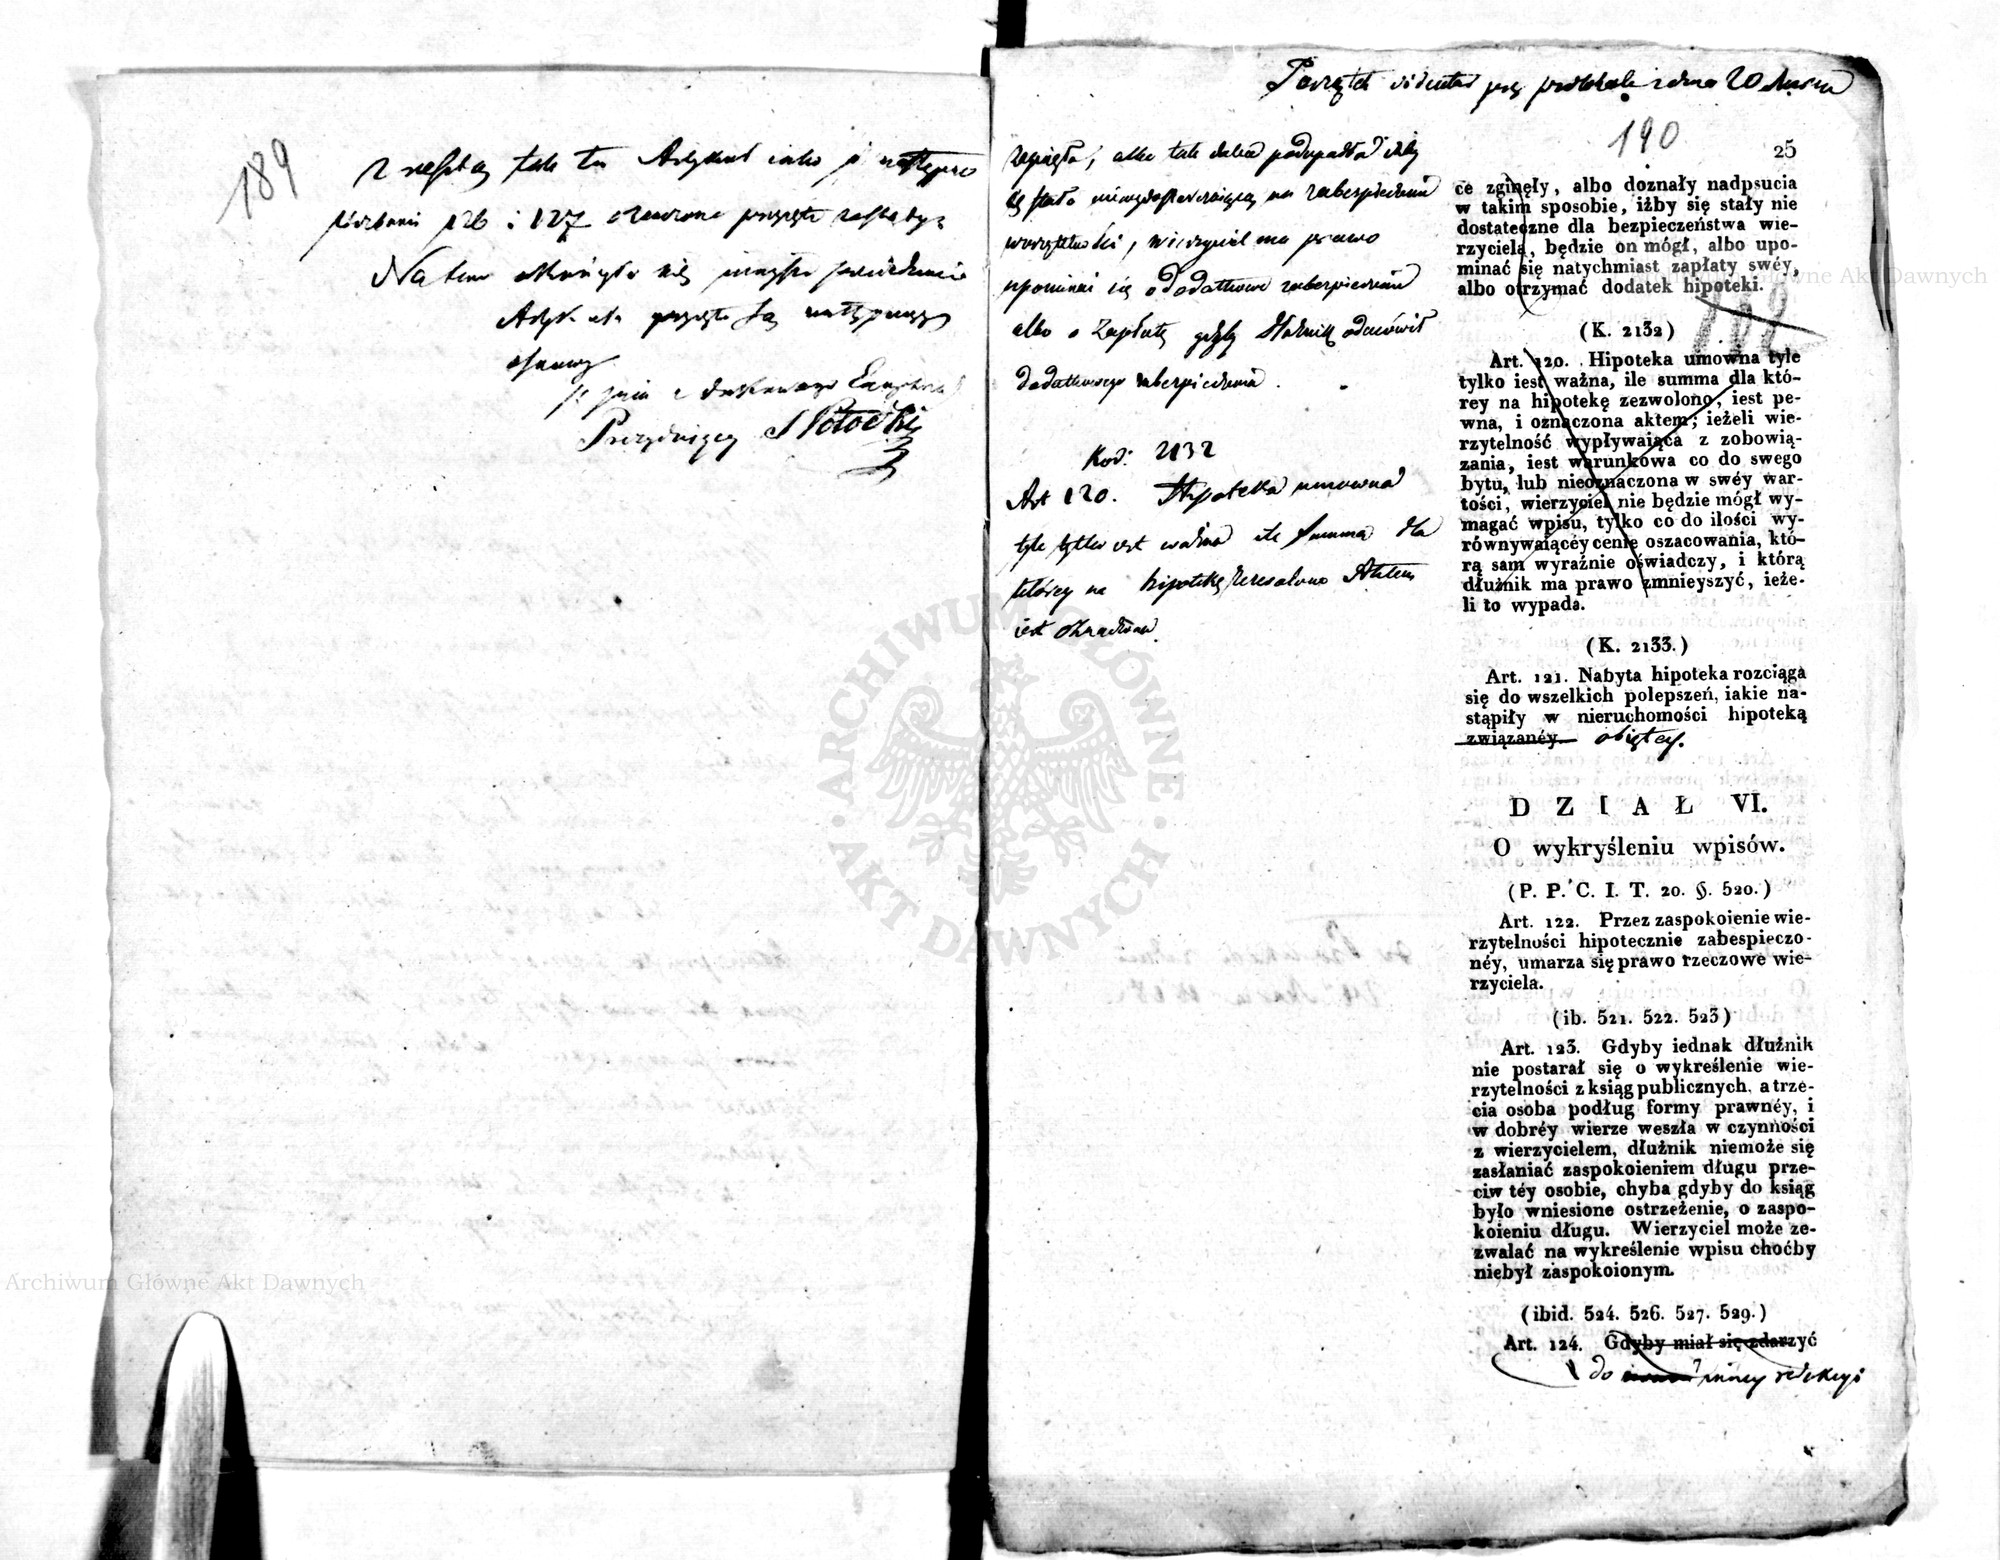 189
z resztą tak ten Artykuł iako i następne
liczbami 126 i 127 oznaczone przyięte zostały.
Na tem
Artykułu przyięto są następujący
osnowy
Prezyduiący SPotocki
Początek protokołu z dnia 20 Marca
190
25
zginęła, albo tak dalece podupadła iżby
się stała niewystarczaiącą na zabezpieczenie
wierzytelności, wierzyciel ma prawo
upominać się o dodatkowe zabezpieczenie
albo o zapłatę gdyby dłużnik odmówił
dodatkowego zabezpieczenia.
Kod: 2132
Art 120. Hypoteka umowna
tyle tylko iest ważna ile summa dla
którey na hipotekę zezwolono Aktem
iest oznaczona
ce zginęły, albo doznały nadpsucia
w takim sposobie, iżby się stały nie
dostateczne dla bezpieczeństwa wie-
rzyciela, będzie on mógł, albo upo-
minać się natychmiast zapłaty swéy,
albo otrzymać dodatek hipoteki.
(K. 2132)
Art. 120. Hipoteka umowna tyle
tylko iest ważna, ile summa dla któ-
rey na hipotekę zezwolono, iest pe-
wna, i oznaczona aktem; ieżeli wie-
rzytelność wypływaiąca z zobowią-
zania, iest warunkowa co do swego
bytu, lub nieoznaczona w swéy war-
tości, wierzyciel nie będzie mógł wy-
magać wpisu, tylko co do ilości wy-
równywaiącéy cenie oszacowania, któ-
rą sam wyraźnie oświadczy, i którą
dłużnik ma prawo zmnieyszyć, ieże-
li to wypada.
(K. 2133.)
Art. 121. Nabyta hipoteka rozciąga
się do wszelkich polepszeń, iakie na-
stąpiły w nieruchomości hipoteką
związanéy obiętey.
DZIAŁ VI.
O wykryśleniu wpisów.
(P. P. C. I. T. 20. §. 520.)
Art. 122. Przez zaspokoienie wie-
rzytelności hipotecznie zabespieczo-
néy, umarza się prawo rzeczowe wie-
rzyciela.
(ib. 521. 522. 523)
Art. 123. Gdyby iednak dłużnik
nie postarał się o wykreślenie wie-
rzytelności z ksiąg publicznych, a trze-
cia osoba podług formy prawnéy, i
w dobréy wierze weszła w czynności
z wierzycielem, dłużnik niemoże się
zasłaniać zaspokoieniem długu prze-
ciw téy osobie, chyba gdyby do ksiąg
było wniesione ostrzeżenie, o zaspo-
koieniu długu. Wierzyciel może ze-
zwalać na wykreślenie wpisu choćby
niebył zaspokoionym.
(ibid. 524. 526. 527. 529.)
Art. 124. Gdyby miał się zdarzyć
do inney redakcyi
ARCHIWUM GŁÓWNE AKT DAWNYCH
Archiwum Główne Akt Dawnych
Archiwum Główne Akt Dawnych